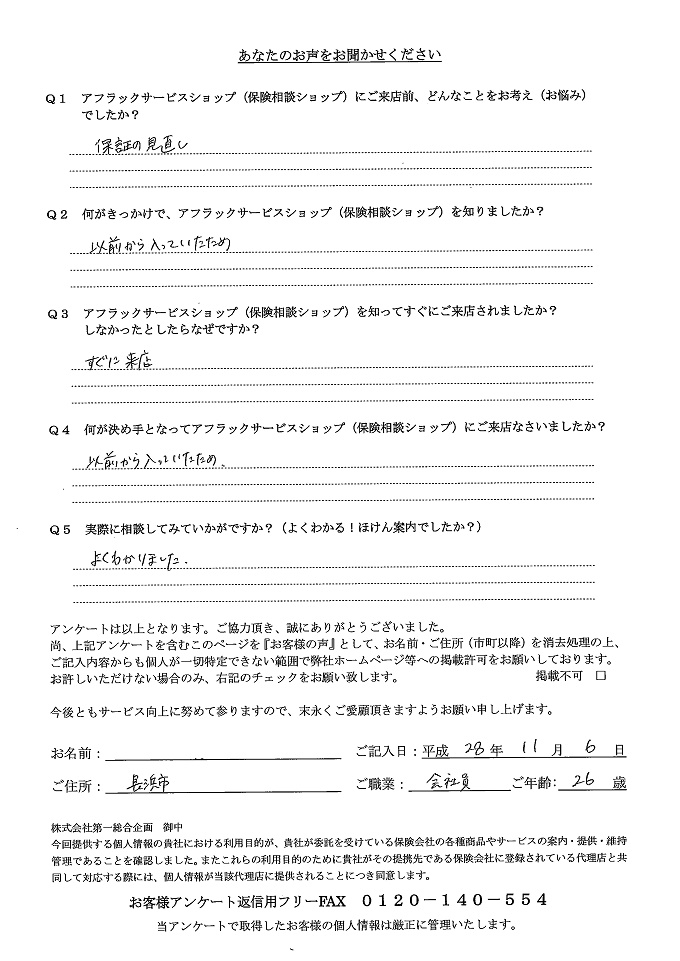 あなたのお声をお聞かせください
Q1 アフラックサービスショップ（保険相談ショップ）にご来店前、どんなことをお考え（お悩み）
でしたか？
保証の見直し
Q2 何がきっかけで、アフラックサービスショップ（保険相談ショップ）を知りましたか？
以前から入っていたため
Q3 アフラックサービスショップ（保険相談ショップ）を知ってすぐにご来店されましたか？
しなかったとしたらなぜですか？
すぐに来店
Q4 何が決め手となってアフラックサービスショップ（保険相談ショップ）にご来店なさいましたか？
以前から入っていたため.
Q5 実際に相談してみていかがですか？（よくわかる！ほけん案内でしたか？）
よくわかりました.
アンケートは以上となります。ご協力頂き、誠にありがとうございました。
尚、上記アンケートを含むこのページを『お客様の声』として、お名前・ご住所（市町以降）を消去処理の上、
ご記入内容からも個人が一切特定できない範囲で弊社ホームページ等への掲載許可をお願いしております。
お許しいただけない場合のみ、右記のチェックをお願い致します。 掲載不可 □
今後ともサービス向上に努めて参りますので、末永くご愛顧頂きますようお願い申し上げます。
お名前： ご記入日：平成 28 年 11 月 6 日
ご住所： 長浜市 ご職業： 会社員 ご年齢： 26 歳
株式会社第一総合企画 御中
今回提供する個人情報の貴社における利用目的が、貴社が委託を受けている保険会社の各種商品やサービスの案内・提供・維持
管理であることを確認しました。またこれらの利用目的のために貴社がその提携先である保険会社に登録されている代理店と共
同して対応する際には、個人情報が当該代理店に提供されることにつき同意します。
お客様アンケート返信用フリーFAX 0120－140－554
当アンケートで取得したお客様の個人情報は厳正に管理いたします。